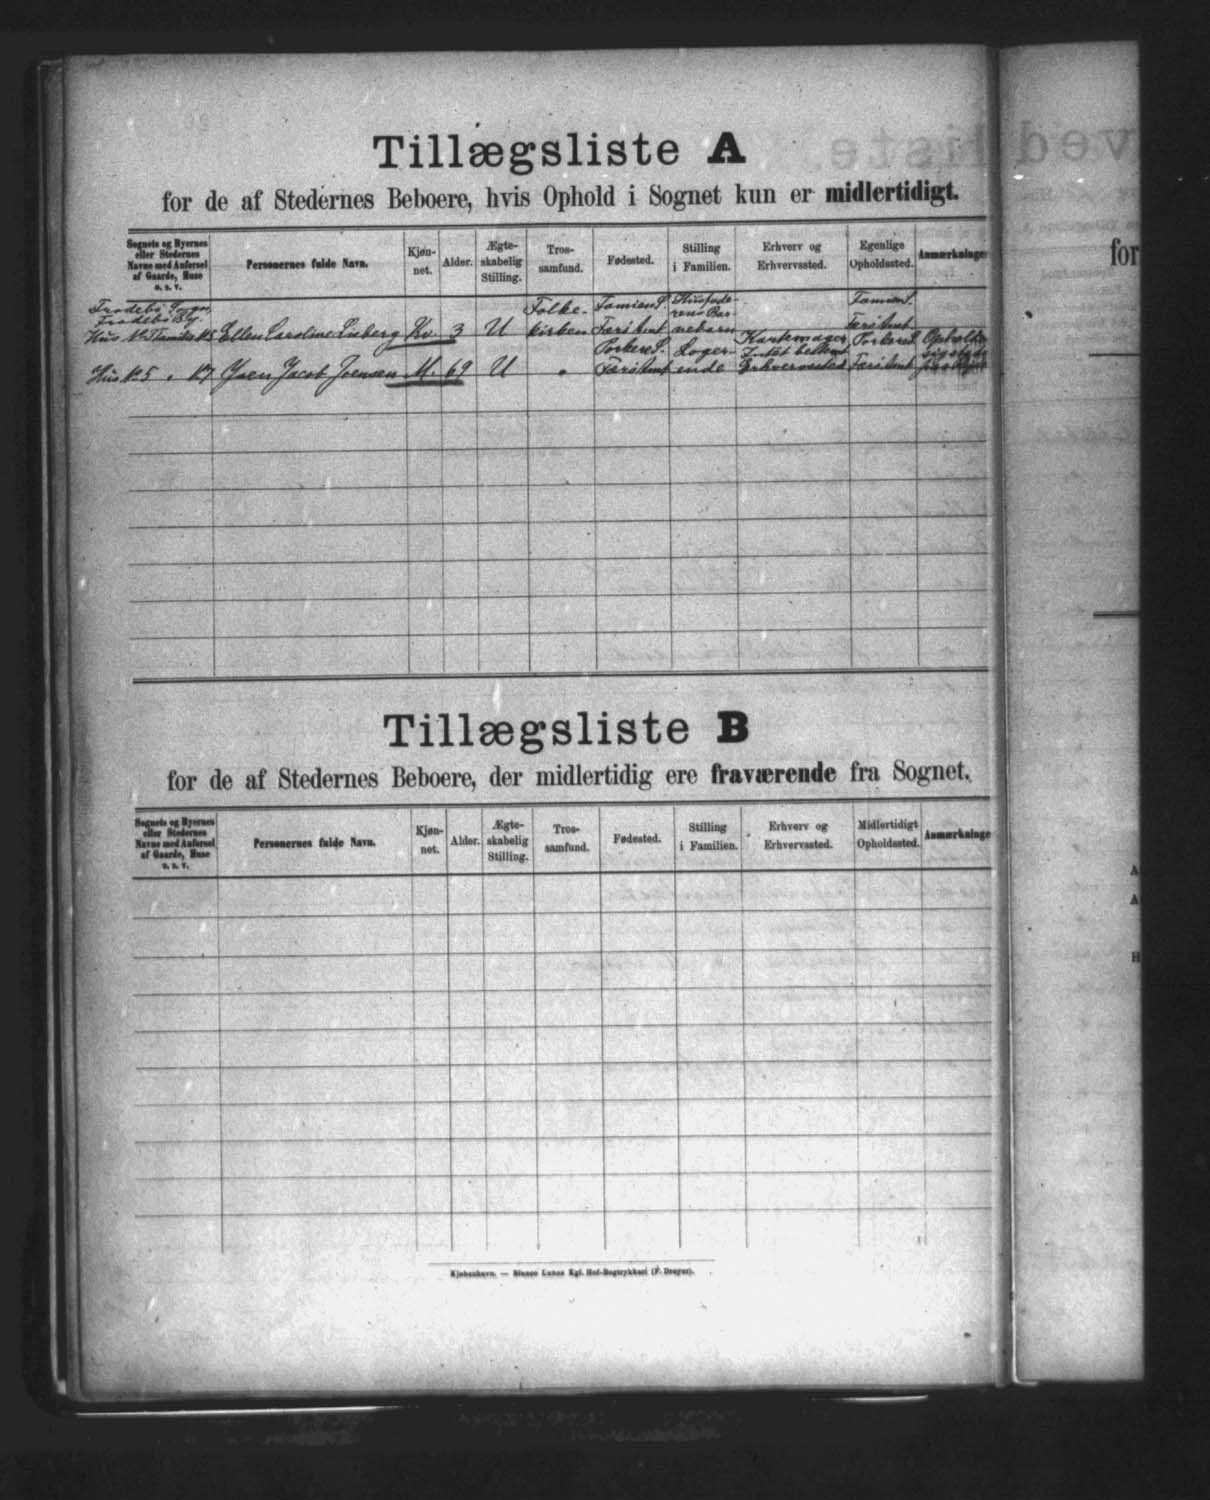 Tillægsliste A
for de af Stedernes Beboere, hvis Ophold i Sognet kun er midlertidigt.
Sognets og Byernes eller Stedernes Navne med Anførsel af Gaarde, Huse o. s. v.
Personernes fulde Navn.
Kjøn-net.
Alder.
Ægte-skabelig Stilling.
Tros-samfund.
Fødested.
Stilling i Familien.
Erhverv og Erhvervssted.
Egenlige Opholdssted.
Anmærkninge
Frodebø Sogn,
Frodebø By.
Hus Ellen Caroline Lieberg Kv. 3 U Folke-kirken Famien S. Færö Amt Husfade-rens Bar-nebarn Famien S. Færö Amt
Hus No 5 " Joen Jacob Joensen M. 69 U " Porkere S. Færö Amt Loger-ende Intet bestemt Erhvervssted Porkere S. Færö Amt
Tillægsliste B
for de af Stedernes Beboere, der midlertidig ere fraværende fra Sognet.
Sognets og Byernes eller Stedernes Navne med Anførsel af Gaarde, Huse o. s. v.
Personernes fulde Navn.
Kjøn-net.
Alder.
Ægte-skabelig Stilling.
Tros-samfund.
Fødested.
Stilling i Familien.
Erhverv og Erhvervssted.
Midlertidigt Opholdssted.
Anmærkninge
Kjøbenhavn. — Bianco Lunos Kgl. Hof-Bogtrykkeri (F. Dreyer).
for
A
A
H